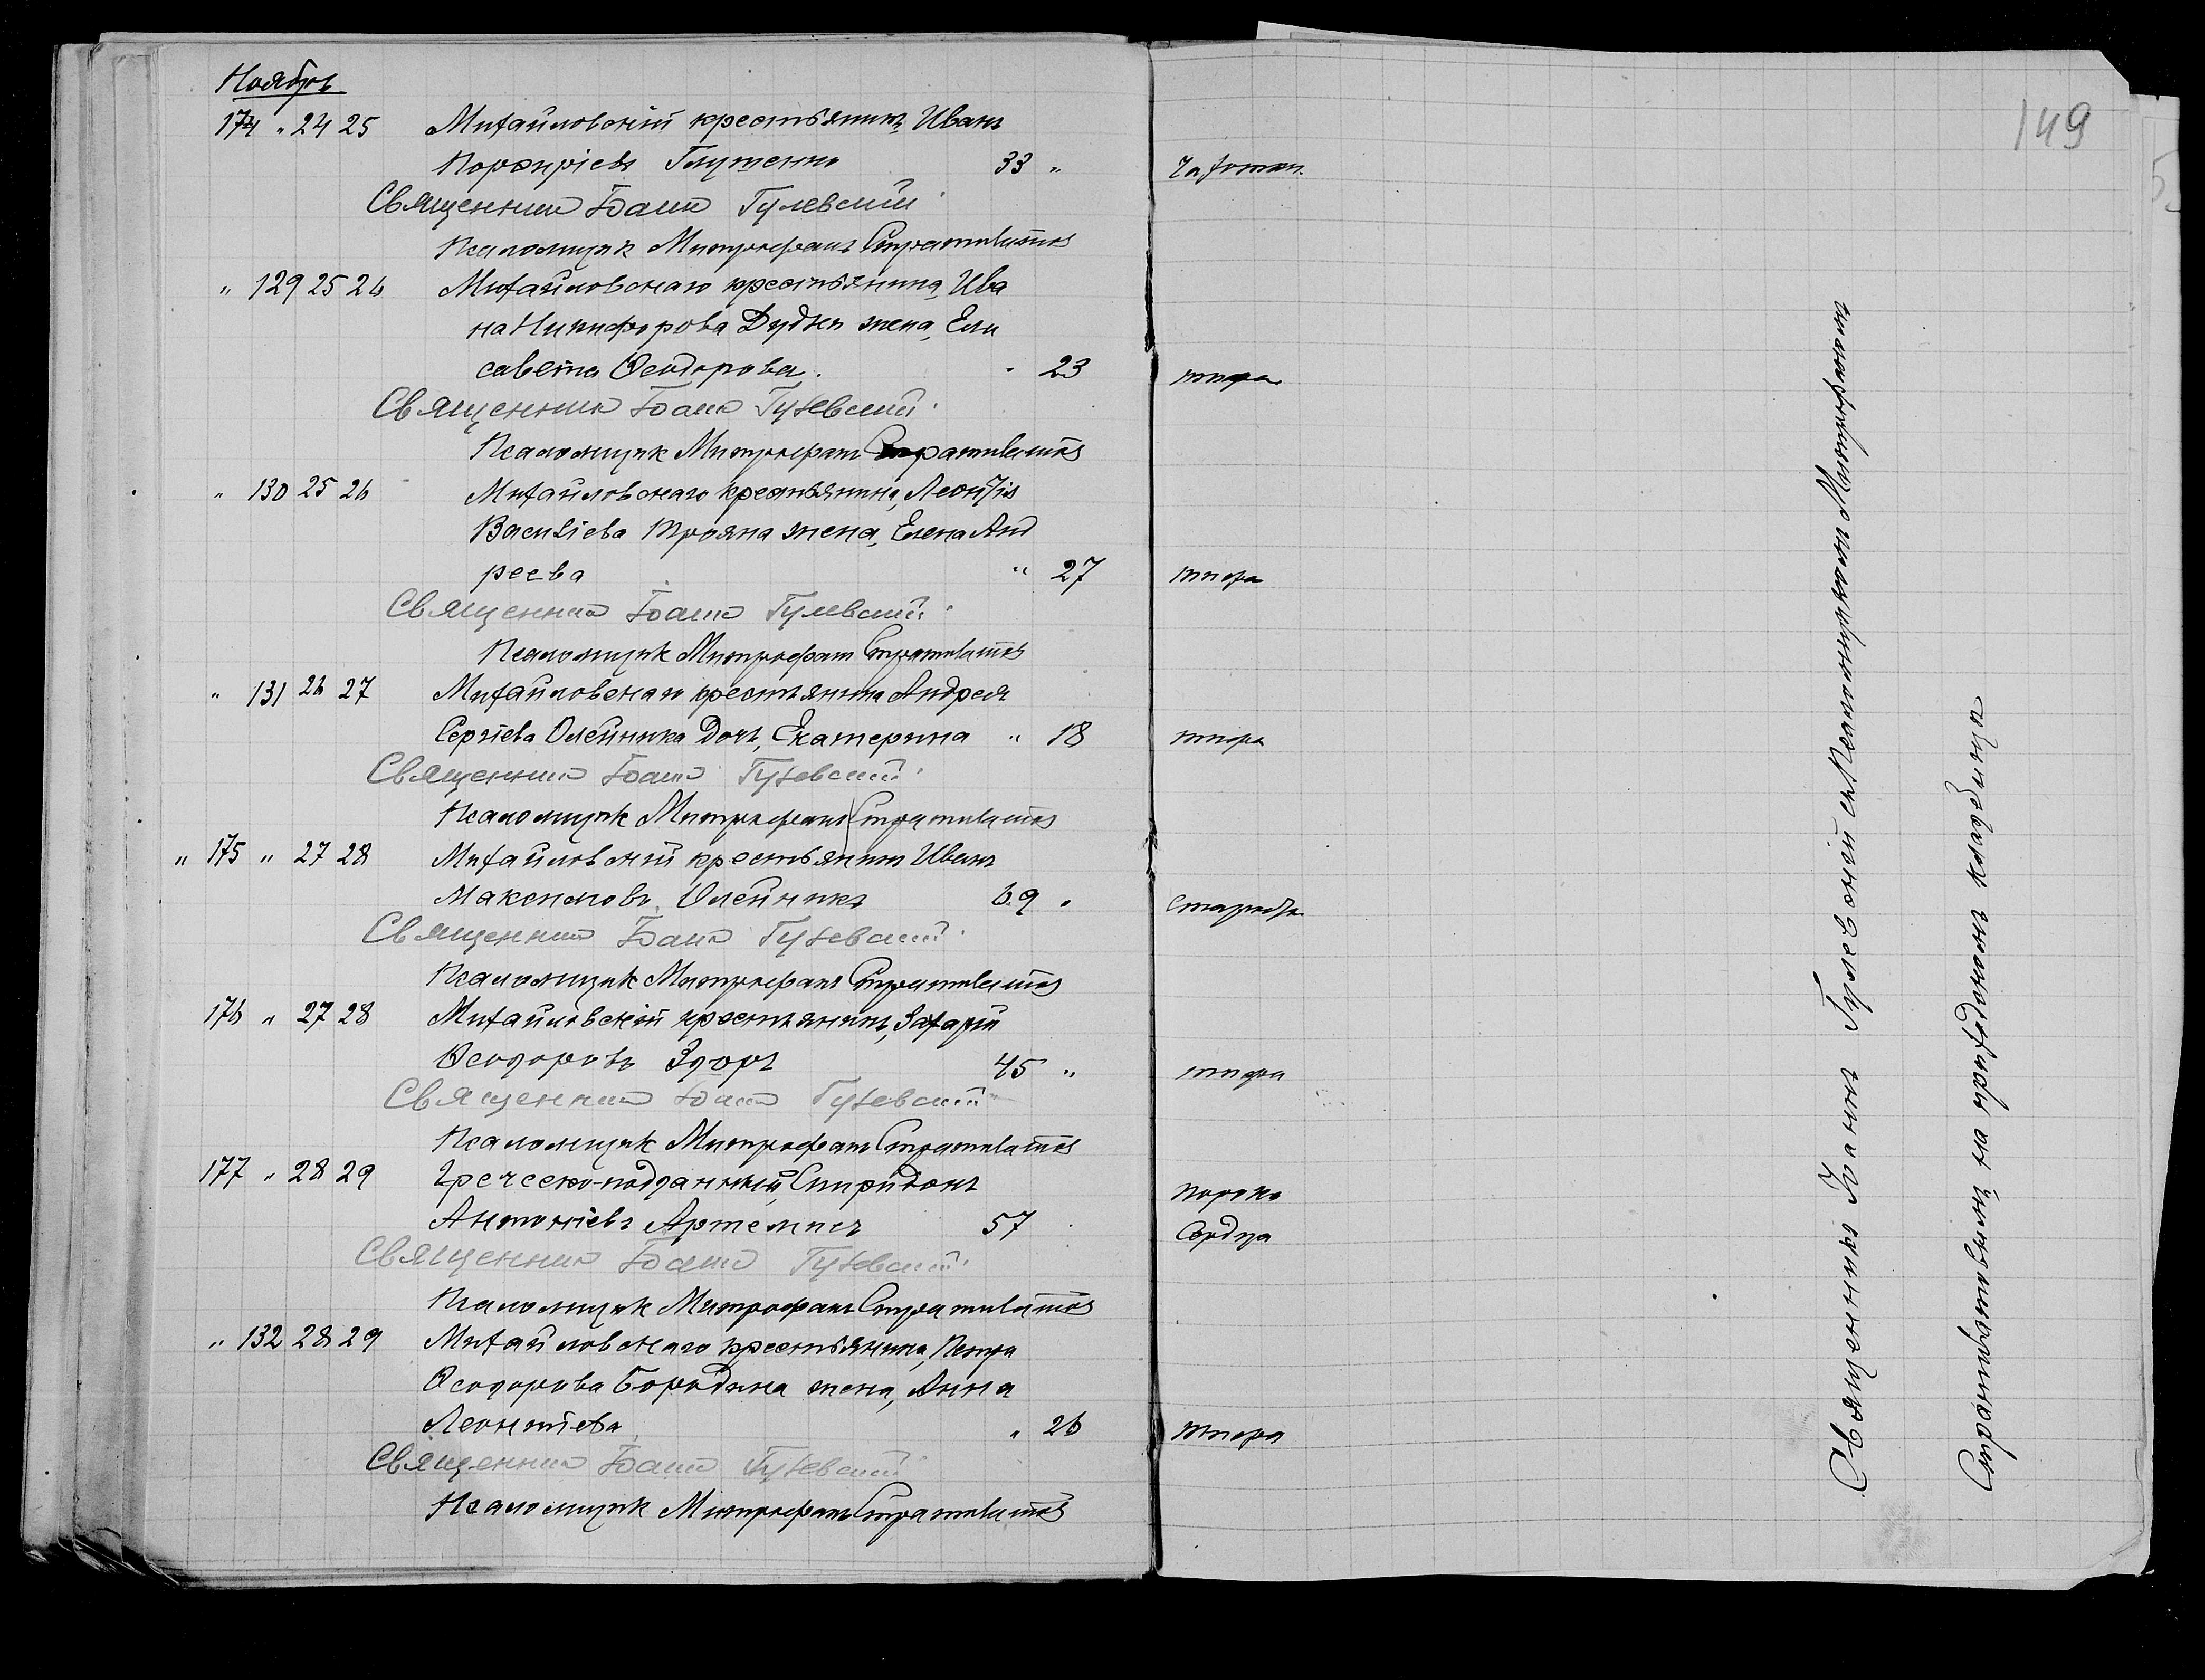 Ноябрь
149
174 " 24 25 Михайловскій крестьянинъ, Иванъ
Порфиріевъ Глущенко 33 " Чахотки
Священникъ Іоаннъ Гулевскій
Псаломщик Митрофанъ
" 129 25 26 Михайловскаго крестьянина, Ива
на Никифорова Дудки жена, Ели
савета Ѳеодорова. " 23 тифа
Священникъ Іоаннъ Гулевскій
Псаломщик Митрофанъ
" 130 25 26 Михайловскаго крестьянина, Леонтія
Василіева Трояна жена, Елена Анд
реева " 27 тифа
Священникъ Іоаннъ Гулевскій
Псаломщик Митрофанъ
" 131 26 27 Михайловскаго крестьянина Андрея
Сергіева Олейника дочь, Екатерина " 18 тифа
Священникъ Іоаннъ Гулевскій
Псаломщик Митрофанъ
" 175 " 27 28 Михайловскій крестьянинъ Иванъ
Максимовъ Олейникъ 69 " Старости
Священникъ Іоаннъ Гулевскій
Псаломщик Митрофанъ
176 " 27 28 Михайловскій крестьянинъ, Захарій
Ѳеодоровъ Здоръ 45 " тифа
Священникъ Іоаннъ Гулевскій
Псаломщик Митрофанъ
177 " 28 29 Греческо-подданный, Спиридонъ порока
Антоніевъ 57 Сердца
Священникъ Іоаннъ Гулевскій
Псаломщик Митрофанъ
" 132 28 29 Михайловскаго крестьянина, Петра
Ѳеодорова Бородина жена, Анна
Леонтіева " 26 тифа
Священникъ Іоаннъ Гулевскій
Псаломщик Митрофанъ
Священникъ Іоаннъ Гулевскій съ Псаломщикомъ Митрофаномъ
на приходскомъ кладбищѣ